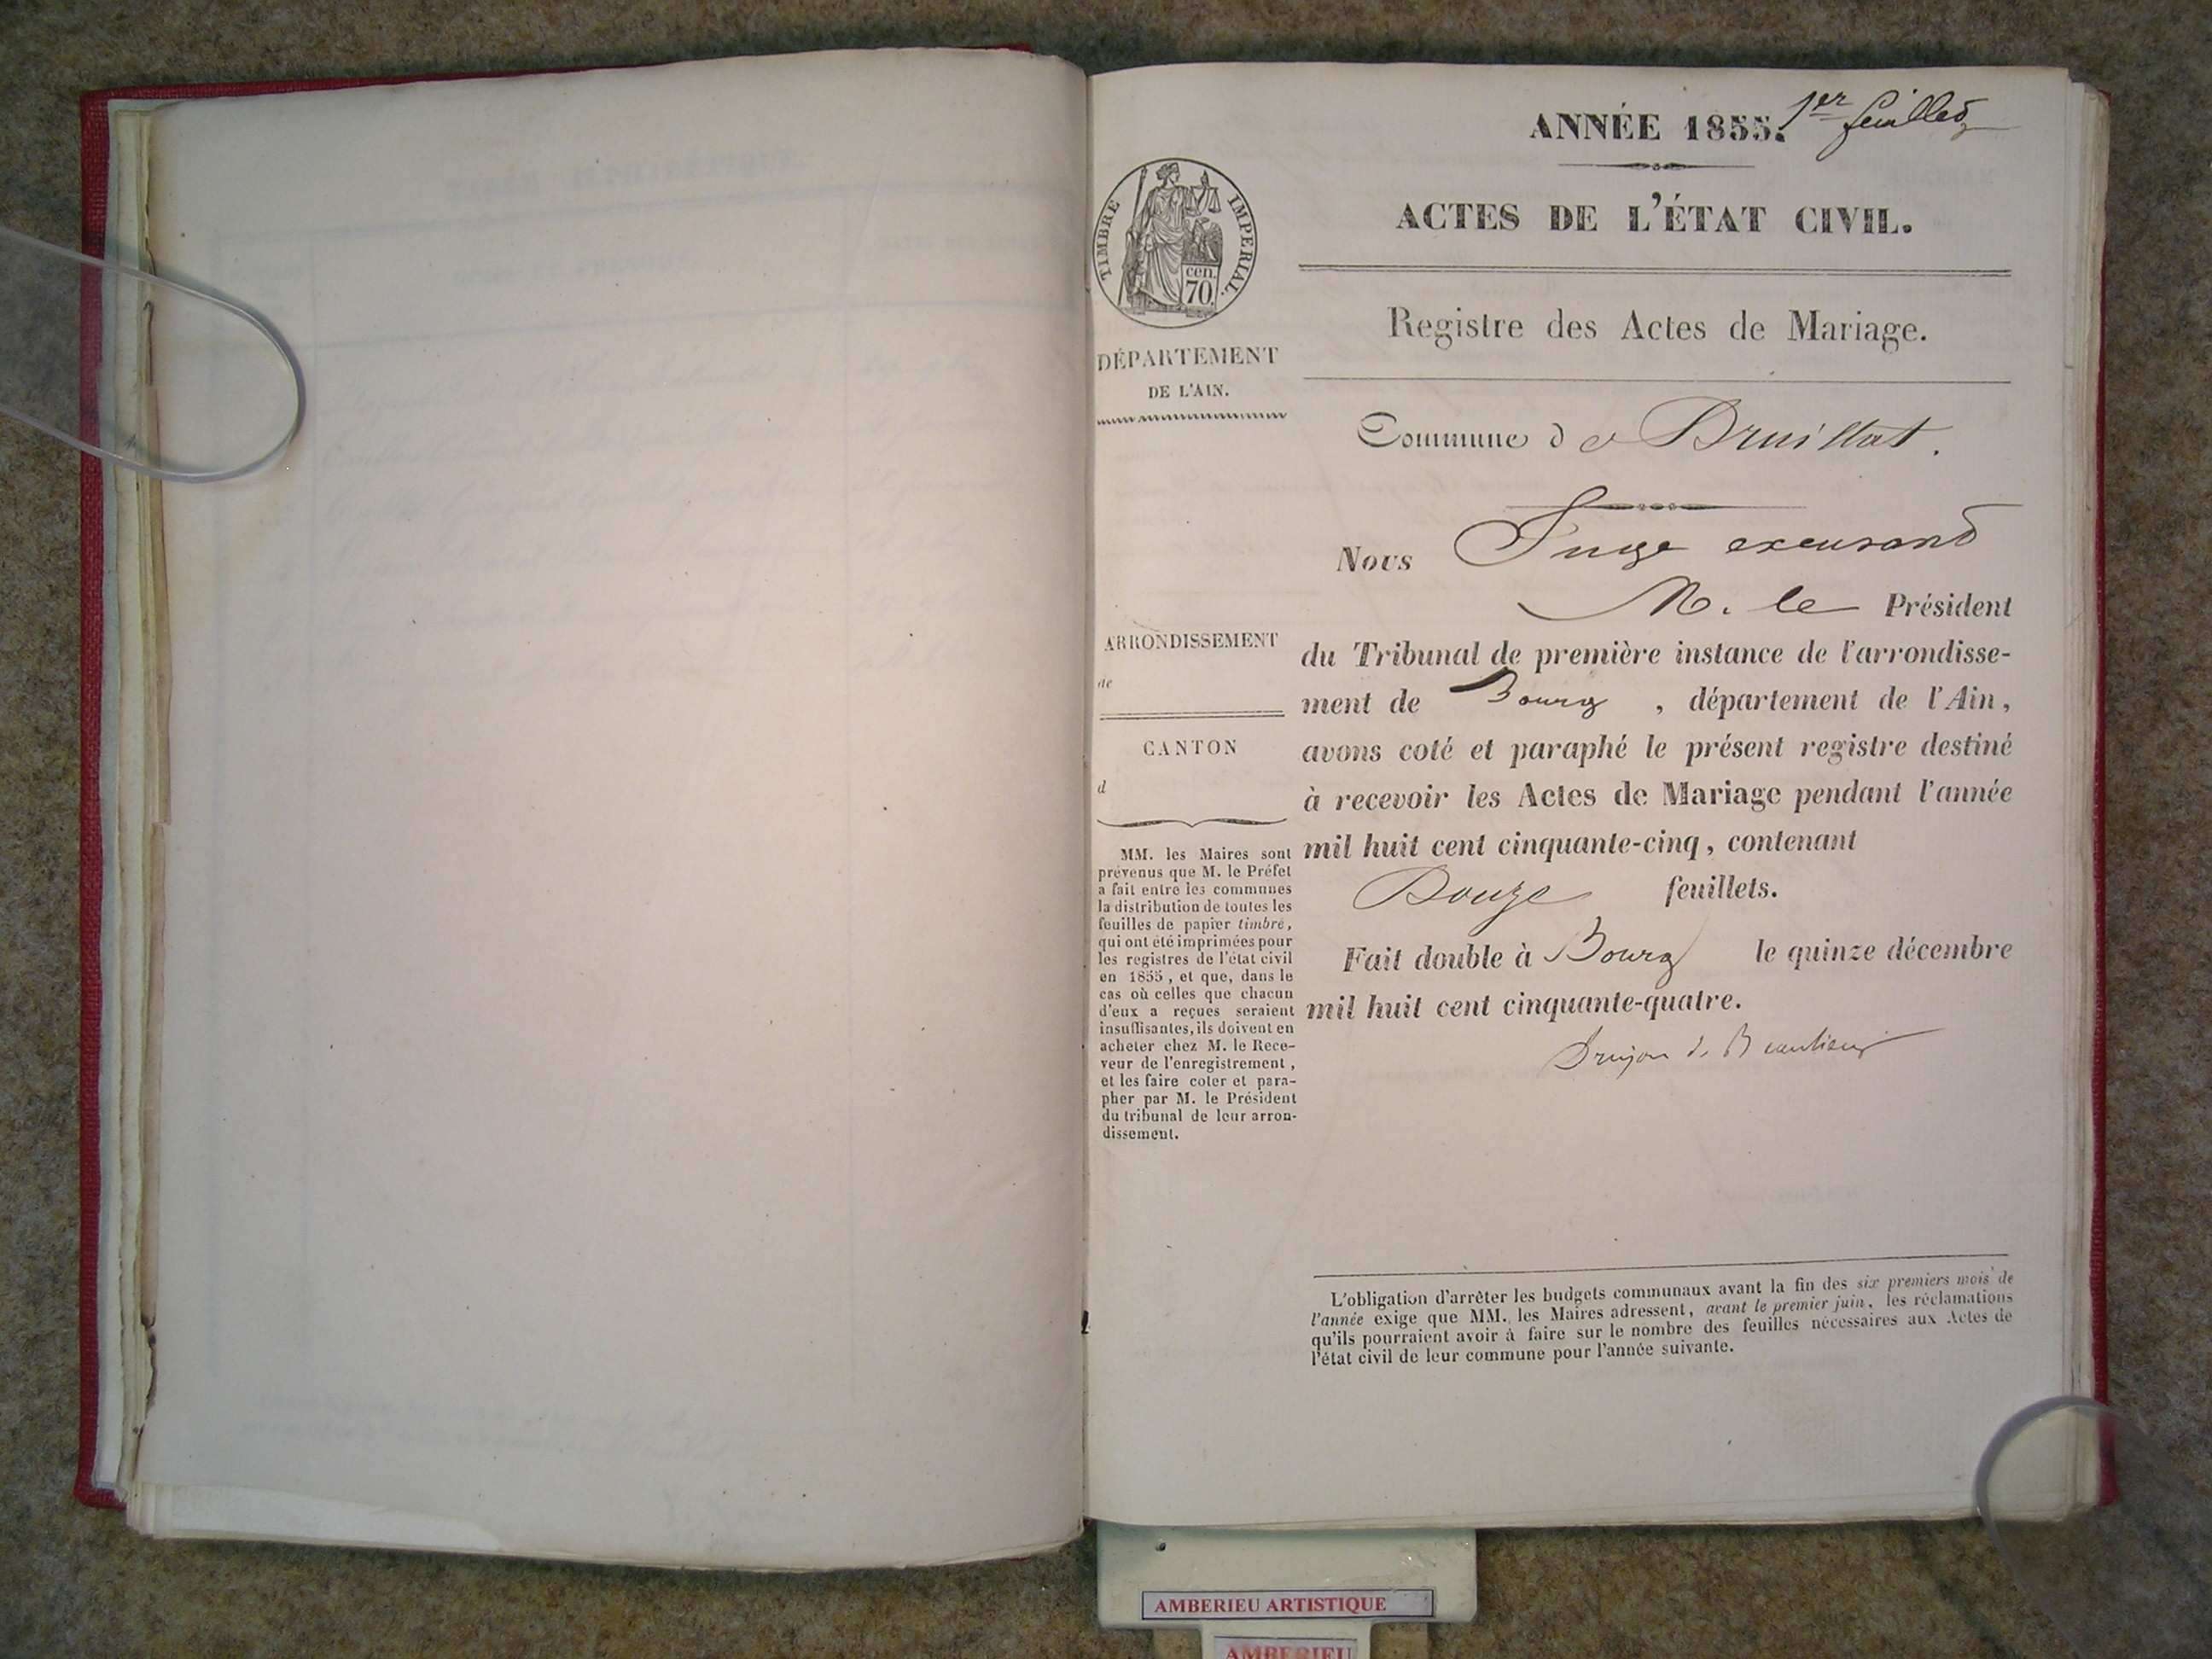 ANNÉE 1855. 1er feuillet
ACTES DE L'ÉTAT CIVIL.
TIMBRE IMPERIAL.
cen.
70.
Registre des Actes de Mariage.
DÉPARTEMENT
DE L'AIN.
Commune de Druillat.
Nous Juge excusant
M. le Président
ARRONDISSEMENT
de
du Tribunal de première instance de l'arrondisse-
ment de Bourg, département de l'Ain,
CANTON
d
avons coté et paraphé le présent registre destiné
à recevoir les Actes de Mariage pendant l'année
mil huit cent cinquante-cinq, contenant
Douze feuillets.
Fait double à Bourg le quinze décembre
mil huit cent cinquante-quatre.
Drujon de Beaulieu
MM. les Maires sont
prévenus que M. le Préfet
a fait entre les communes
la distribution de toutes les
feuilles de papier timbré,
qui ont été imprimées pour
les registres de l'état civil
en 1855, et que, dans le
cas où celles que chacun
d'eux a reçues seraient
insuffisantes, ils doivent en
acheter chez M. le Rece-
veur de l'enregistrement,
et les faire coter et para-
pher par M. le Président
du tribunal de leur arron-
dissement.
L'obligation d'arrêter les budgets communaux avant la fin des six premiers mois de
l'année exige que MM. les Maires adressent, avant le premier juin, les réclamations
qu'ils pourraient avoir à faire sur le nombre des feuilles nécessaires aux Actes de
l'état civil de leur commune pour l'année suivante.
AMBERIEU ARTISTIQUE
AMBERIEU